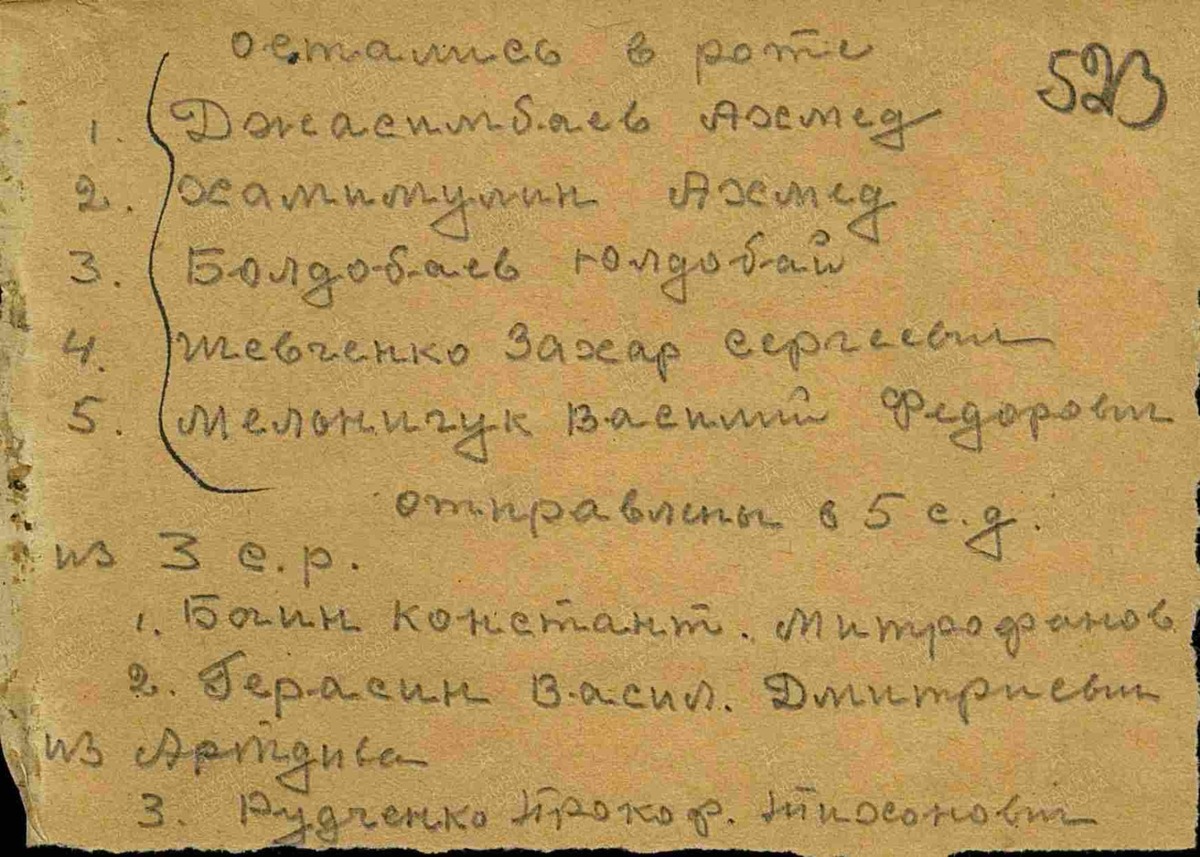 остались в роте
523
1. Джасимбаев Ахмед
2. Хамимулин Ахмед
3. Болдобаев Юлдобай
4. Шевченко Захар Сергеевич
5. Мельничук Василий Федорович
отправлены в 5 с.д.
из 3 с.р.
1. Баин Констант. Митрофанов
2. Герасин Васил. Дмитриевич
из Артдива
3. Рудченко Прокоф. Тихонович